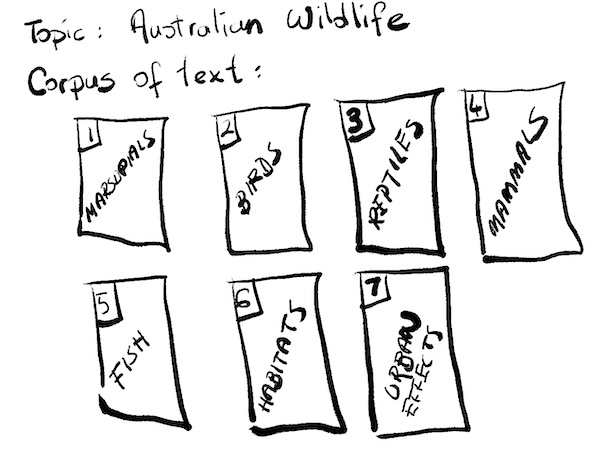 Topic: Australian Wildlife
Corpus of text:
1
MARSUPIALS
2
BIRDS
3
REPTILES
4
MAMMALS
5
FISH
6
HABITATS
7
URBAN
EFFECTS